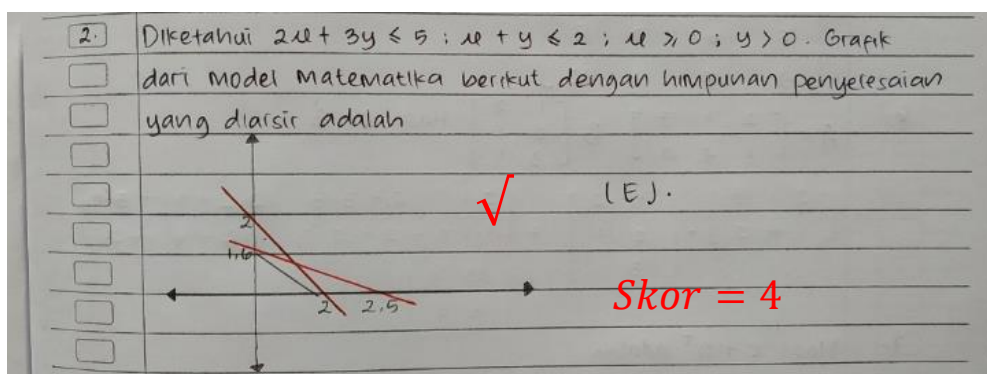 2. Diketahui 2x + 3y ≤ 5 ; x + y ≤ 2 ; x ≥ 0 ; y > 0. Grafik
dari model matematika berikut dengan himpunan penyelesaian
yang diarsir adalah
√ (E).
2
1,6
2 2,5
Skor = 4